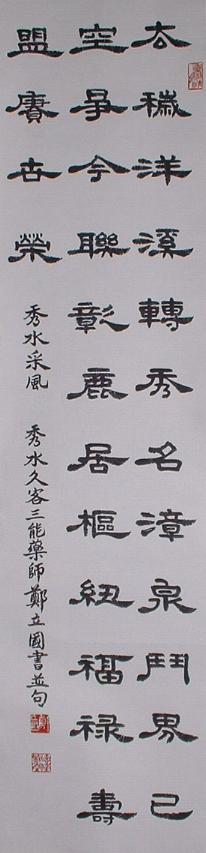 去穢洋溪轉秀名漳泉鬥界已
空爭今聯彰鹿居樞紐福祿壽
盟賡世榮
秀水采風 秀水久客三能藥師鄭立國書並句